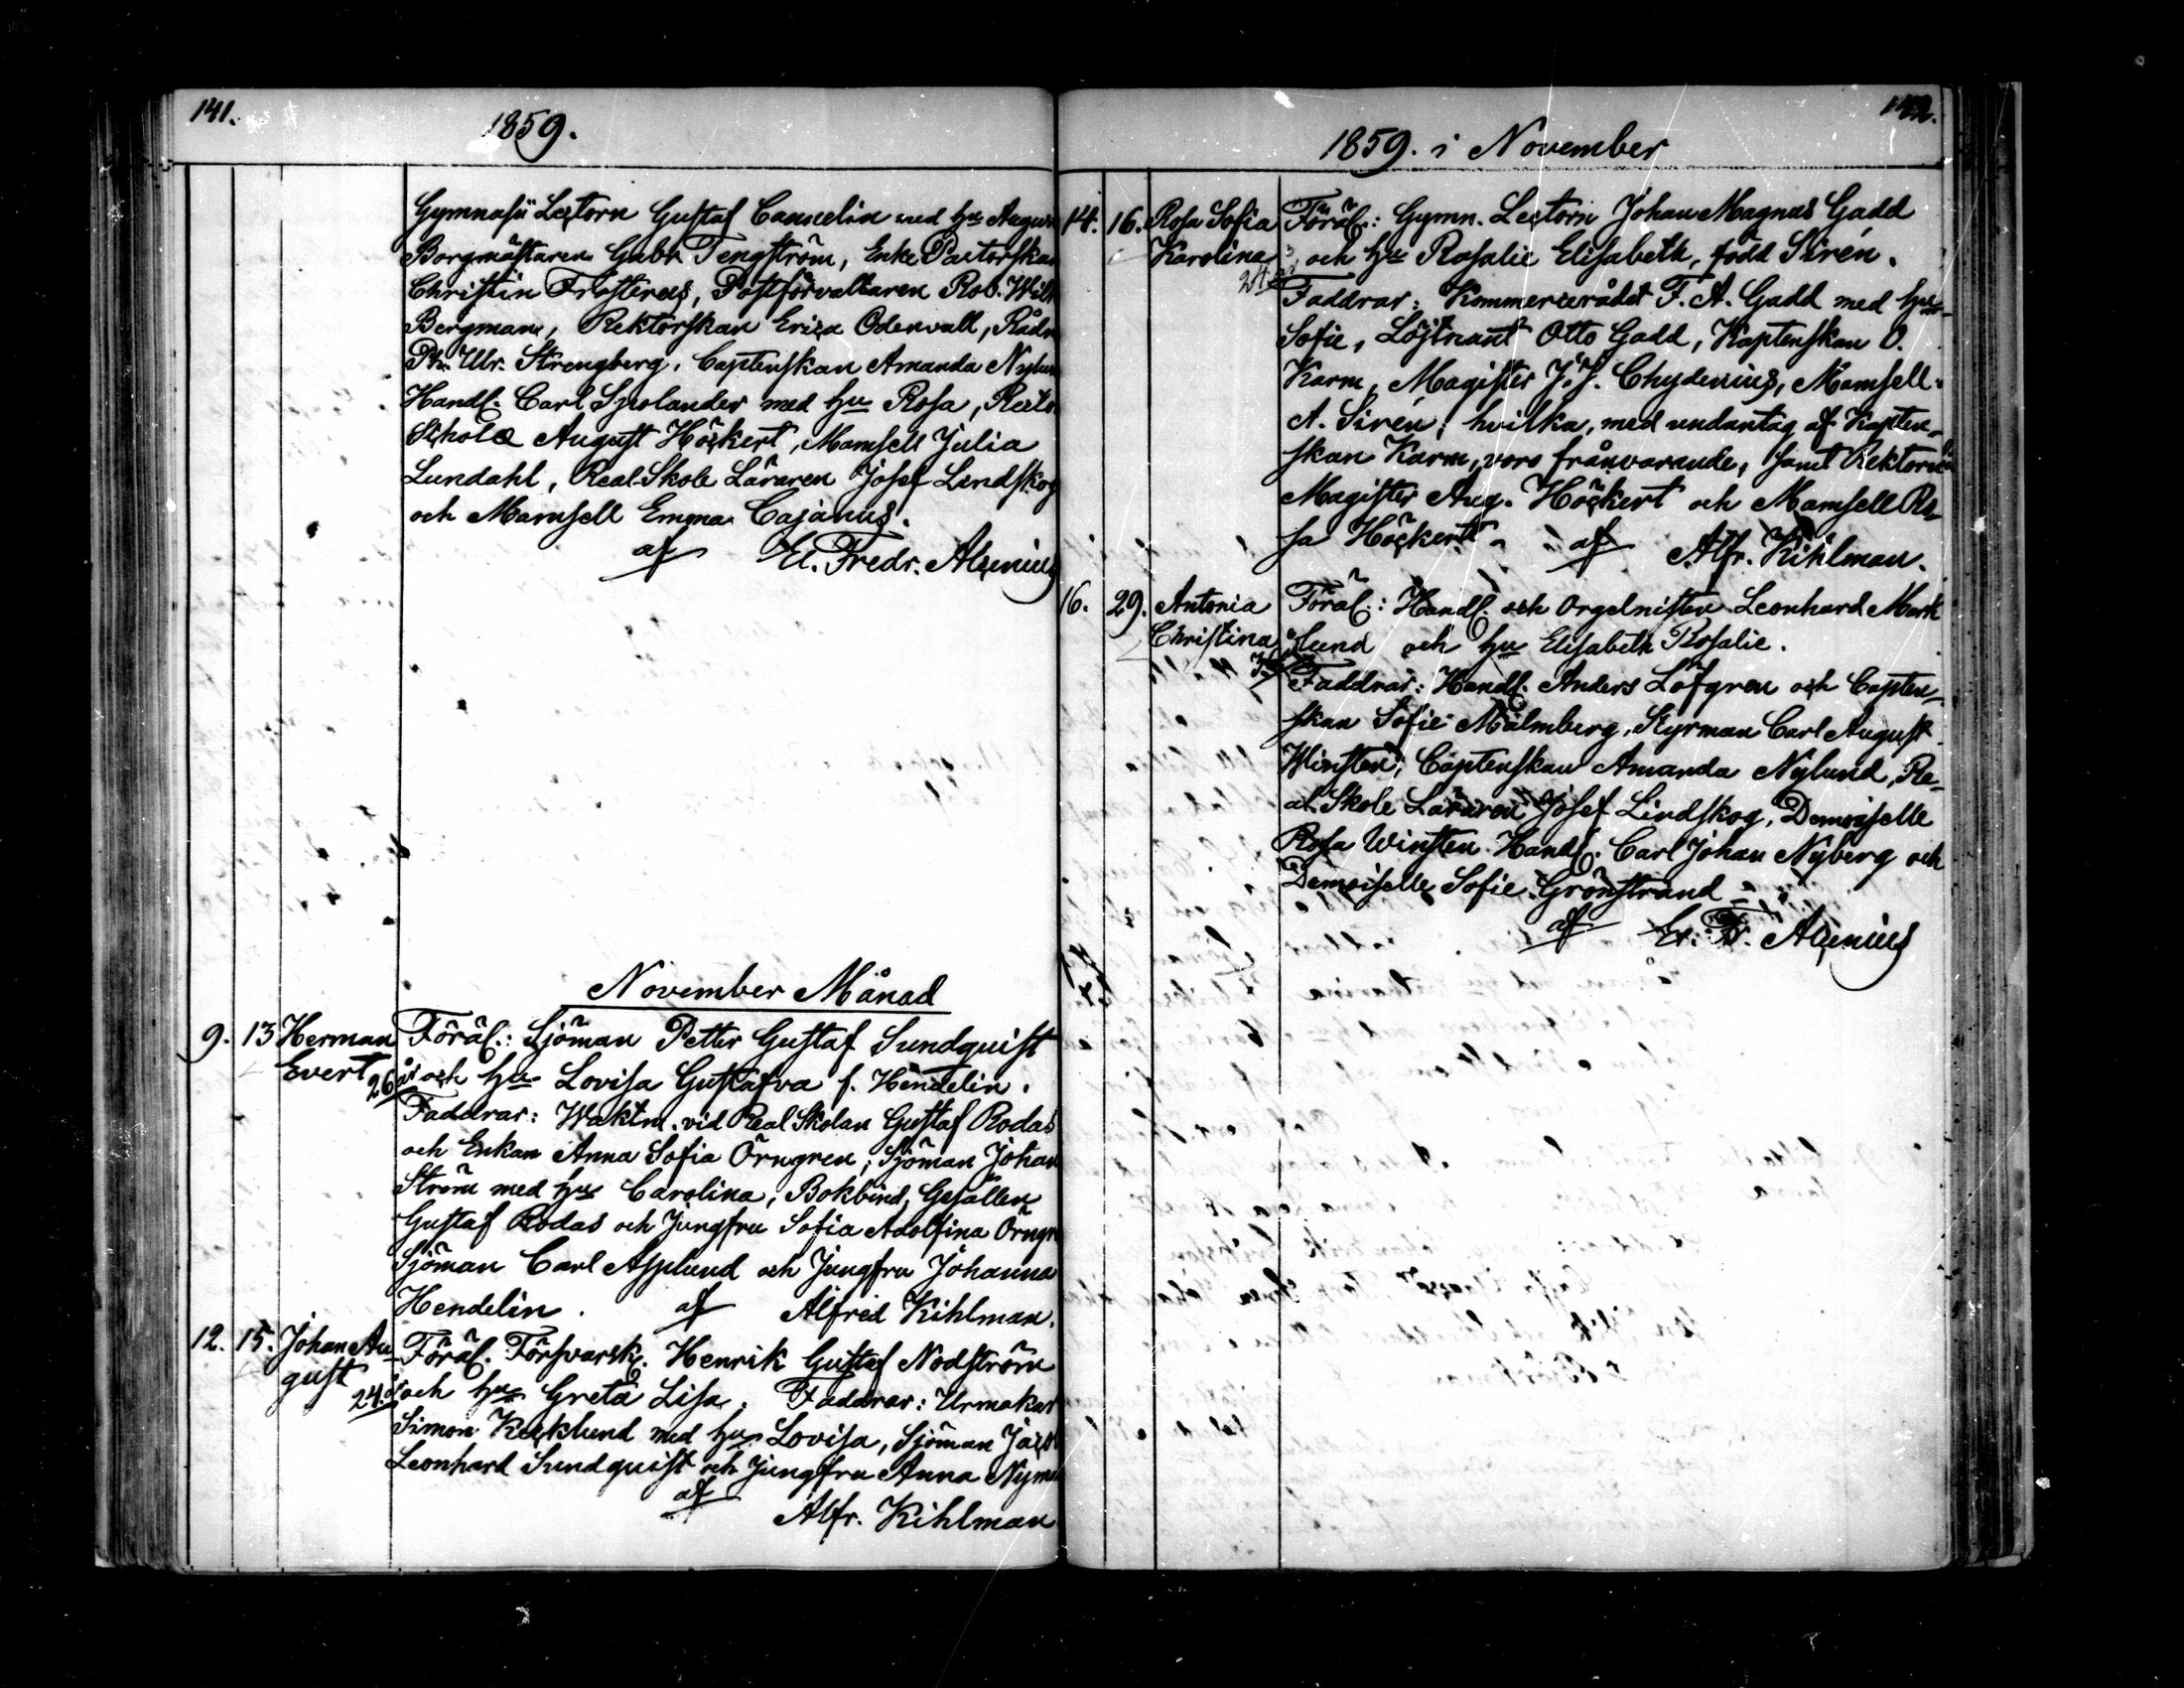 141.
1859.
Gymnasii Lectorn Gustaf Cannelin med hu August
Borgmästaren Gabr Tengström, Enke Pastorskan
Christin Frosterus, Postförvaltaren Rob. Wilh
Bergman, Rektorskan Erica Odenvall, Rådm
Ph. Ulr. Strengberg, Captenskan Amanda Nylun
Handl. Carl Sjolander med hu Rosa, Recto
Schola August Höckert, Mamsell Julia
Lundahl, Real Skole Läraren Josef Lindskog
och Mamsell Emma Cajanus.
af El. Fredr. Alcenius
November Månad
9. 13 Herman Föräl.: Sjöman Petter Gustaf Sundquist
Evert 26 år och hu Lovisa Gustafva f. Hendelin.
Faddrar: Waktm. vid Real Skolan Gustaf Rodas
och Enkan Anna Sofia Örngren, Sjöman Johan
Ström med hu Carolina, Bokbind. Gesällen
Gustaf Rodas och Jungfru Sofia Adolfina Örngr
Sjöman Carl Asplund och Jungfru Johanna
Hendelin. af Alfred Kihlman.
12. 15. Johan Au- Föräl. Försvarsk. Henrik Gustaf Nodström
gust 24. och hu Greta Lisa. Faddrar: Urmakar
Simon Kecklund med hu Lovisa, Sjöman Jacob
Leonhard Sundquist och Jungfru Anna Nyma
af
Alfr. Kihlman
142.
1859. i November
14. 16. Rosa Sofia Föräl.: Gymn. Lectorn Johan Magnus Gadd
Karolina 24 och hu Rosalie Elisabeth, född Sirén.
Faddrar: Kommerserådet F. A. Gadd med hu
Sofie, Löjtnant Otto Gadd, Kaptenskan O.
Karm, Magister J. J. Chydenius, Mamsell
A. Sirén; hvilka, med undantag af Kapten-
skan Karm, voro frånvarande, samt Rektorn
Magister Aug. Höckert och Mamsell Ro-
sa Höckert af Alfr. Kihlman.
16. 29. Antonia Föräl.: Handl. och Orgelnisten Leonhard Mark
Christina lund och hu Elisabeth Rosalie.
Faddrar: Handl. Anders Löfgren och Capten-
skan Sofie Malmberg, Styrman Carl August
Winsten, Captenskan Amanda Nylund, Re-
al. Skole Läraren Josef Lindskog, Demoiselle
Rosa Winsten Handl. Carl Johan Nyberg och
Demoiselle Sofie Grönstrand
af Er. Fr. Alcenius